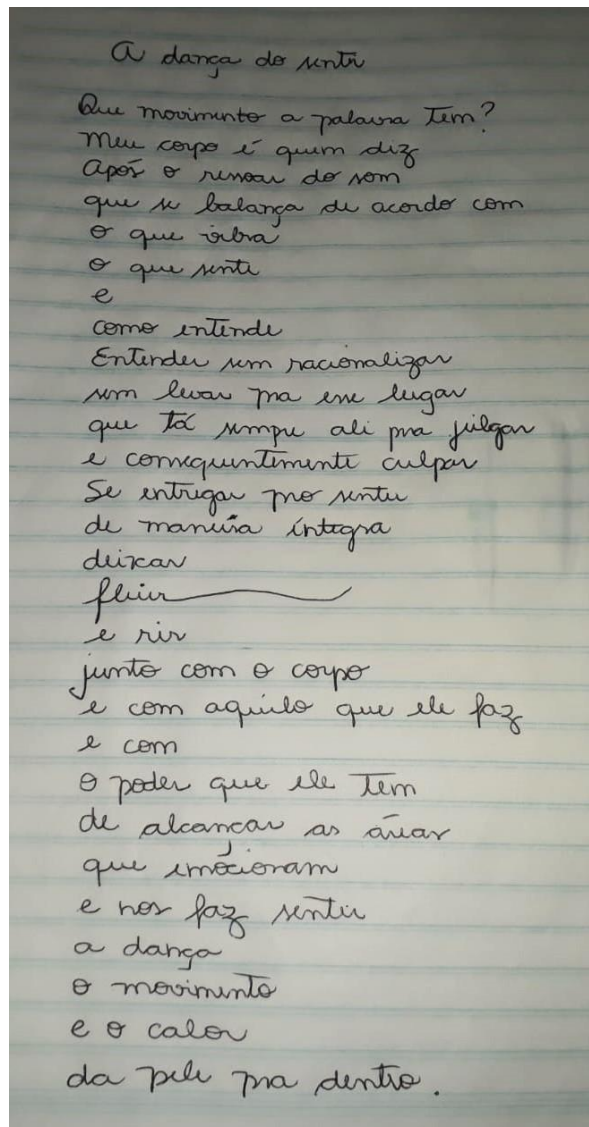 A dança do sentir
Que movimento a palavra tem?
Meu corpo é quem diz
Após o ressoar do som
que se balança de acordo com
o que vibra
o que sente
e
como entende
Entender sem racionalizar
sem levar pra esse lugar
que tá sempre ali pra julgar
e consequentemente culpar
Se entregar pro sentir
de maneira íntegra
deixar
fluir
e rir
junto com o corpo
e com aquilo que ele faz
e com
o poder que ele tem
de alcançar as áreas
que emocionam
e nos faz sentir
a dança
o movimento
e o calor
da pele pra dentro.